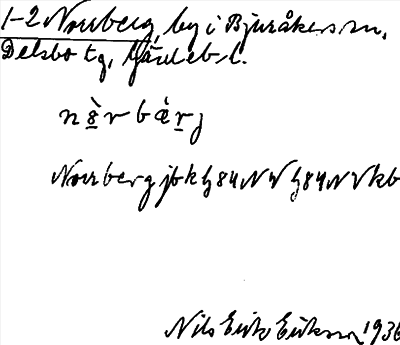 1-2 Norrberg, by i Bjuråkers sn,
Delsbo tg, Gävleb. l.
n ş̀ r b æ̀ r̠ j
Norrberg jbk h84NV h84NVkb
Nils Eric Eriksson 1936